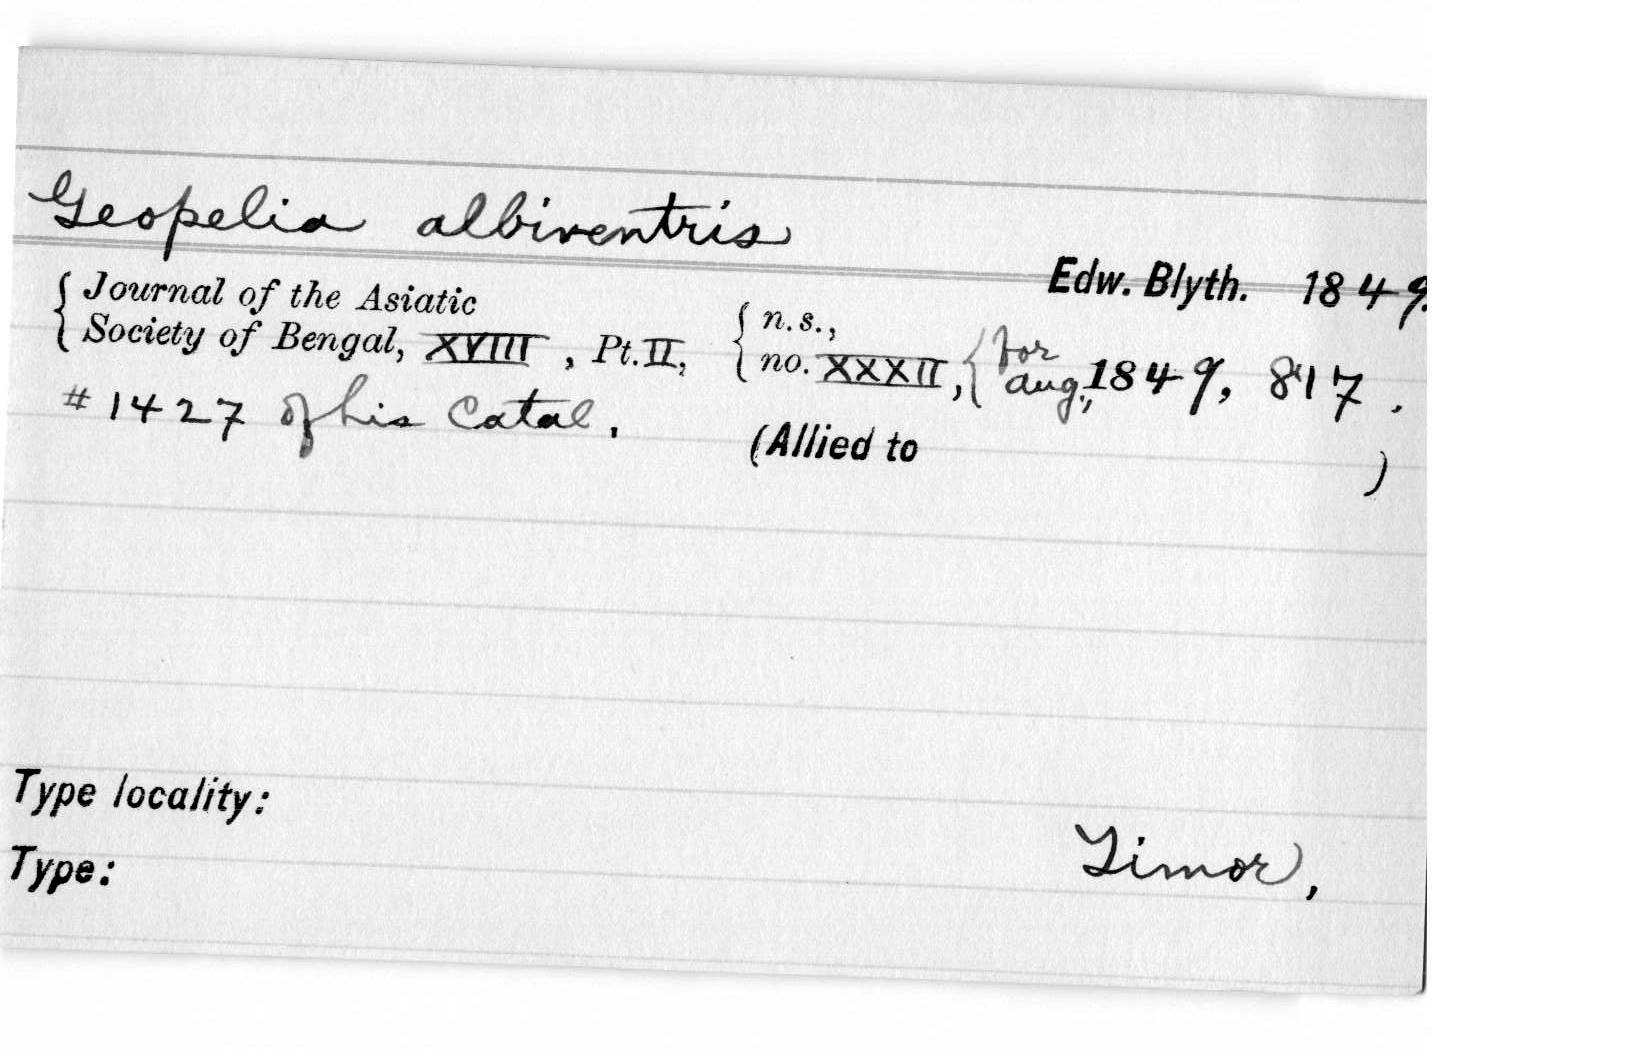 Geopelia albiventris
Edw. Blyth. 1849.
{ Journal of the Asiatic
Society of Bengal, XVIII, Pt. II, { n.s.,
no. XXXII, { for
Aug., 1849, 817.
# 1427 of his Catal.
(Allied to )
Type locality:
Timor,
Type: